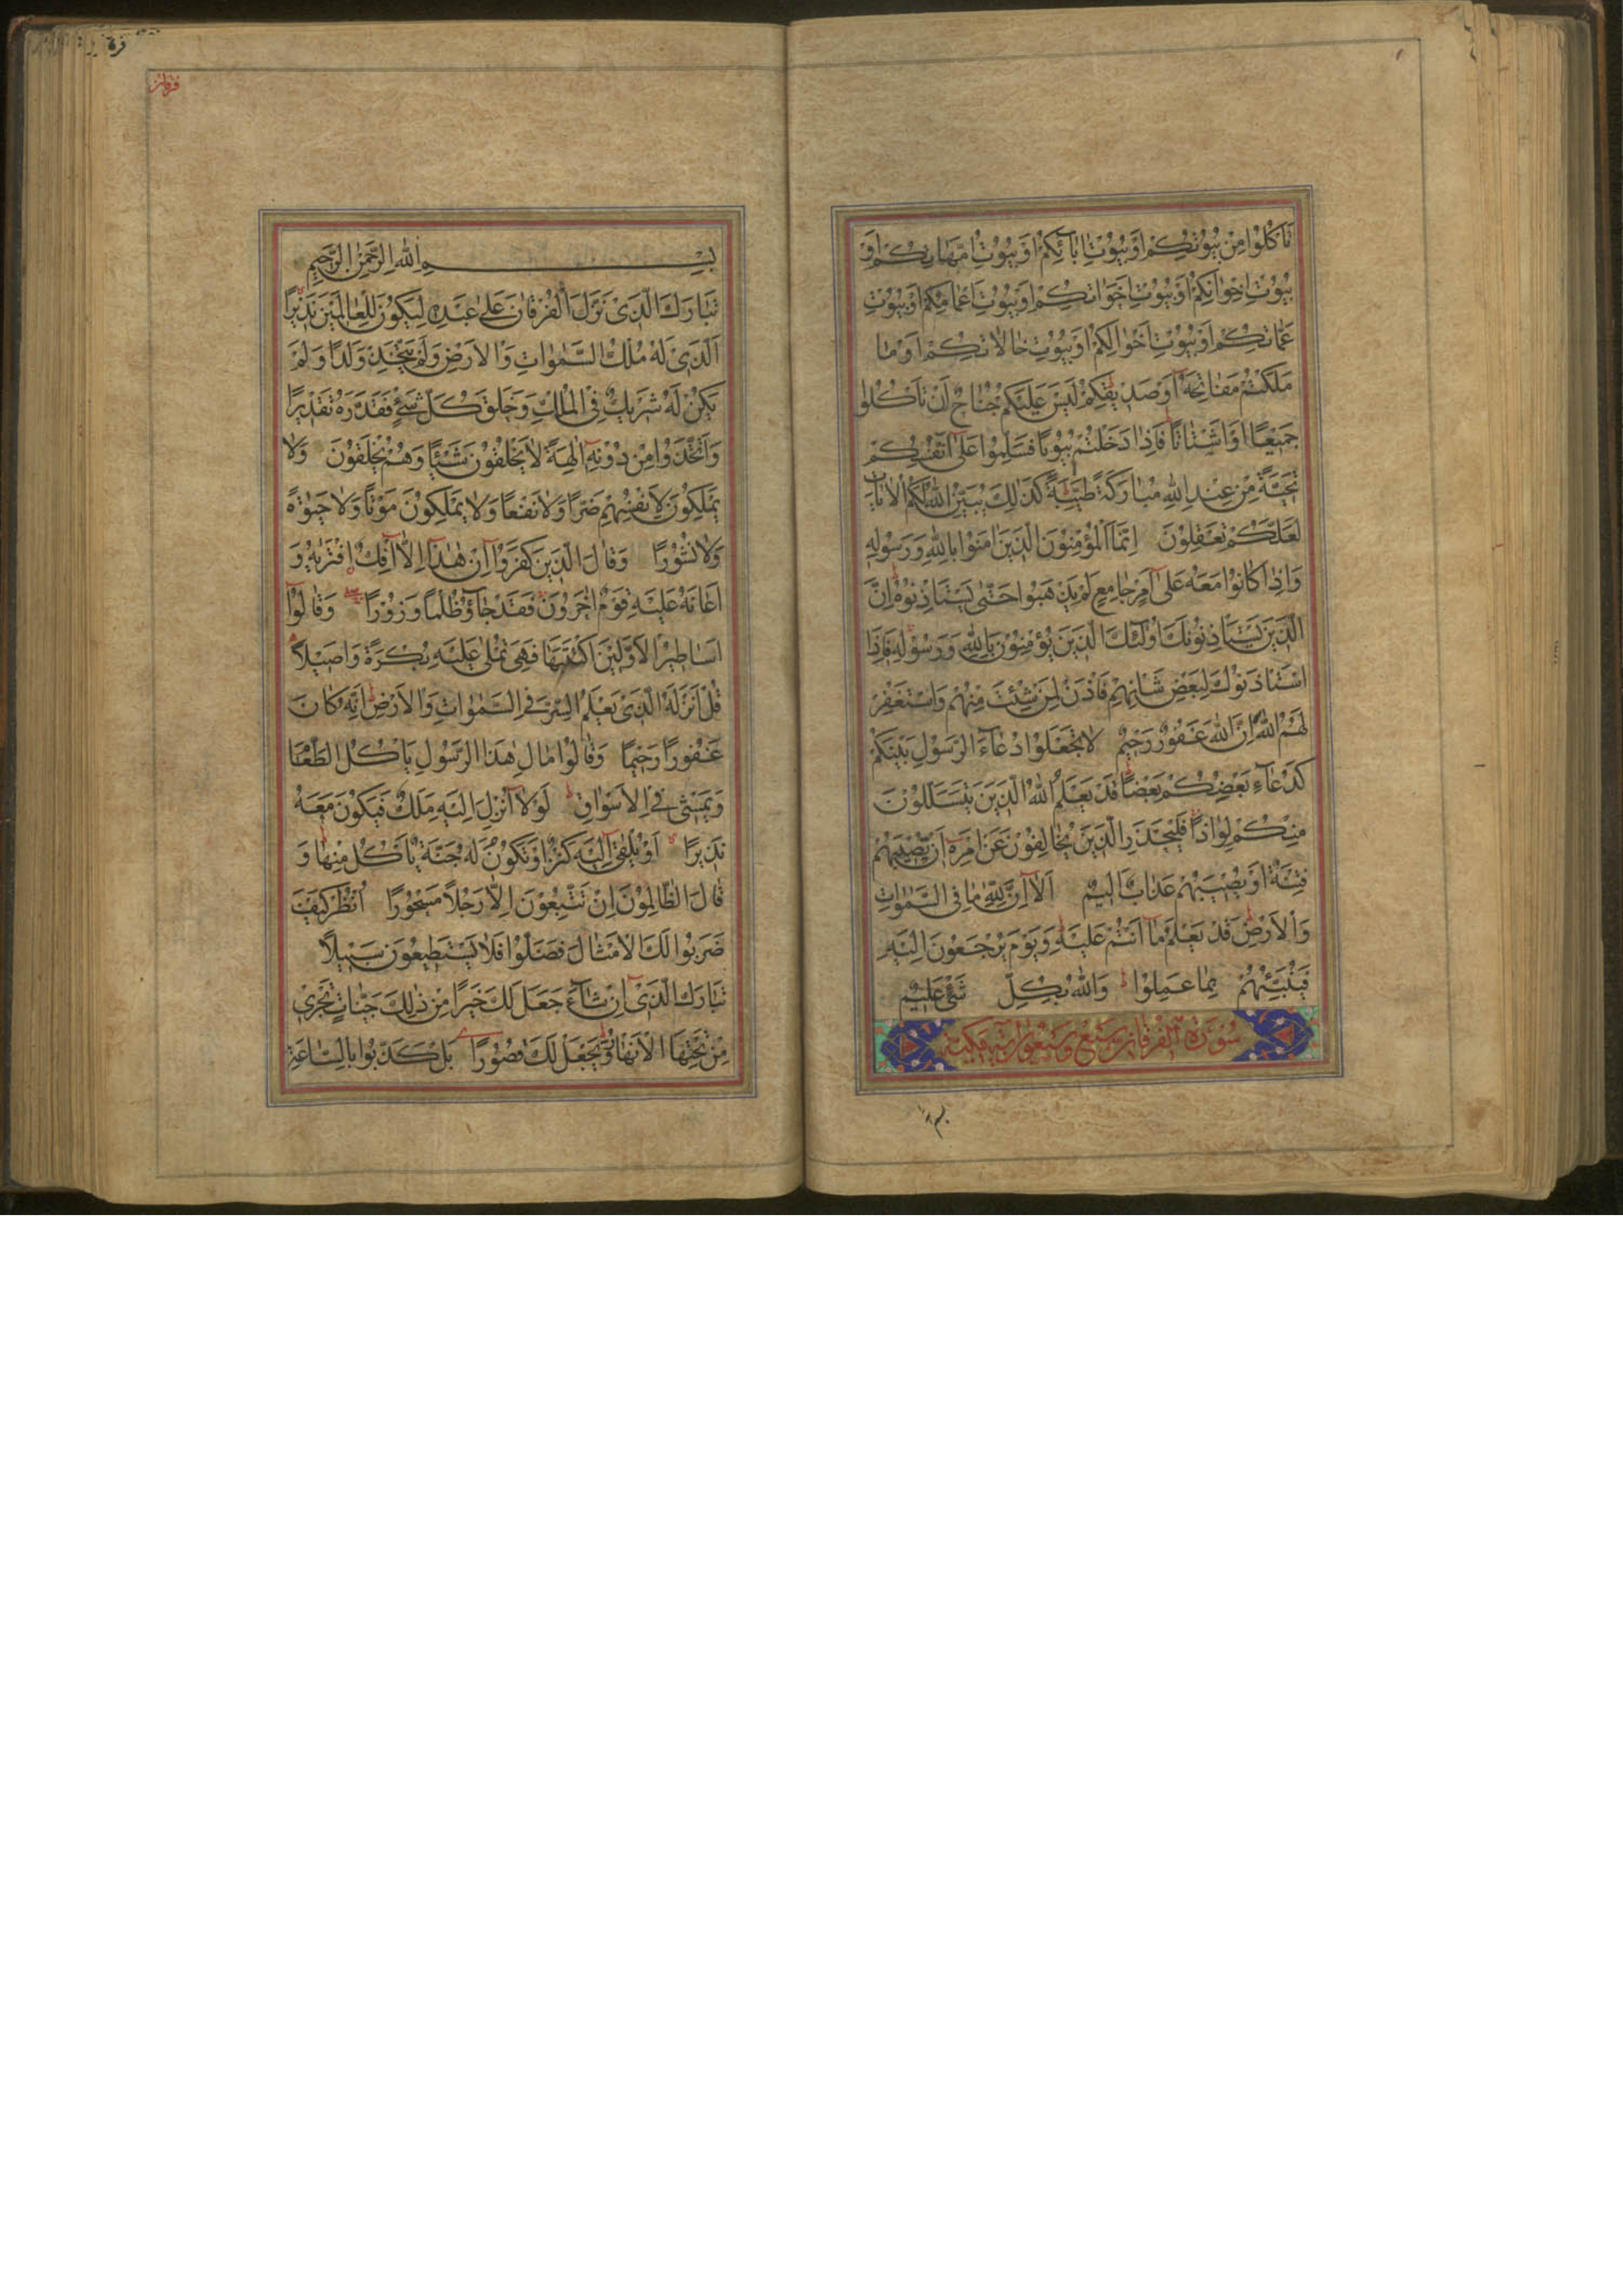 تَأْكُلُوا مِنْ بُيُوتِكُمْ أَوْ بُيُوتِ اٰبَآئِكُمْ اَوْ بُيُوتِ اُمَّهَاتِكُمْ اَوْ
بُيُوتِ اِخْوَانِكُمْ اَوْ بُيُوتِ اَخَوَاتِكُمْ اَوْ بُيُوتِ اَعْمَامِكُمْ اَوْ بُيُوتِ
عَمَّاتِكُمْ اَوْ بُيُوتِ اَخْوَالِكُمْ اَوْ بُيُوتِ خَالَاتِكُمْ اَوْ مَا
مَلَكْتُمْ مَفَاتِحَهُ اَوْ صَدِيقِكُمْ لَيْسَ عَلَيْكُمْ جُنَاحٌ اَنْ تَأْكُلُوا
جَمِيعًا اَوْ اَشْتَاتًا فَاِذَا دَخَلْتُمْ بُيُوتًا فَسَلِّمُوا عَلٰى اَنْفُسِكُمْ
تَحِيَّةً مِنْ عِنْدِ اللهِ مُبَارَكَةً طَيِّبَةً كَذَالِكَ يُبَيِّنُ اللهُ لَكُمُ الْاٰيَاتِ
لَعَلَّكُمْ تَعْقِلُونَ اِنَّمَا الْمُؤْمِنُونَ الَّذِينَ اٰمَنُوا بِاللهِ وَرَسُولِهِ
وَاِذَا كَانُوا مَعَهُ عَلٰى اَمْرٍ جَامِعٍ لَمْ يَذْهَبُوا حَتّٰى يَسْتَاْذِنُوهُ اِنَّ
الَّذِينَ يَسْتَاْذِنُونَكَ اُولٰئِكَ الَّذِينَ يُؤْمِنُونَ بِاللهِ وَرَسُولِهِ فَاِذَا
اسْتَاْذَنُوكَ لِبَعْضِ شَاْنِهِمْ فَاْذَنْ لِمَنْ شِئْتَ مِنْهُمْ وَاسْتَغْفِرْ
لَهُمُ اللهَ اِنَّ اللهَ غَفُورٌ رَحِيمٌ لَا تَجْعَلُوا دُعَآءَ الرَّسُولِ بَيْنَكُمْ
كَدُعَآءِ بَعْضِكُمْ بَعْضًا قَدْ يَعْلَمُ اللهُ الَّذِينَ يَتَسَلَّلُونَ
مِنْكُمْ لِوَاذًا فَلْيَحْذَرِ الَّذِينَ يُخَالِفُونَ عَنْ اَمْرِهِ اَنْ تُصِيبَهُمْ
فِتْنَةٌ اَوْ يُصِيبَهُمْ عَذَابٌ اَلِيمٌ اَلَآ اِنَّ لِلّٰهِ مَا فِى السَّمٰوَاتِ
وَالْاَرْضِ قَدْ يَعْلَمُ مَآ اَنْتُمْ عَلَيْهِ وَيَوْمَ يُرْجَعُونَ اِلَيْهِ
فَيُنَبِّئُهُمْ بِمَا عَمِلُوا وَاللهُ بِكُلِّ شَىْءٍ عَلِيمٌ
سُورَةُ الْفُرْقَانِ سَبْعٌ وَسَبْعُونَ اٰيَةً مَكِّيَّة
بِسْمِ اللهِ الرَّحْمٰنِ الرَّحِيمِ
تَبَارَكَ الَّذِى نَزَّلَ الْفُرْقَانَ عَلٰى عَبْدِهِ لِيَكُونَ لِلْعَالَمِينَ نَذِيرًا
اَلَّذِى لَهُ مُلْكُ السَّمٰوَاتِ وَالْاَرْضِ وَلَمْ يَتَّخِذْ وَلَدًا وَلَمْ
يَكُنْ لَهُ شَرِيكٌ فِى الْمُلْكِ وَخَلَقَ كُلَّ شَىْءٍ فَقَدَّرَهُ تَقْدِيرًا
وَاتَّخَذُوا مِنْ دُونِهِ اٰلِهَةً لَا يَخْلُقُونَ شَيْئًا وَهُمْ يُخْلَقُونَ وَلَا
يَمْلِكُونَ لِاَنْفُسِهِمْ ضَرًّا وَلَا نَفْعًا وَلَا يَمْلِكُونَ مَوْتًا وَلَا حَيٰوةً
وَلَا نُشُورًا وَقَالَ الَّذِينَ كَفَرُوا اِنْ هٰذَا اِلَّا اِفْكٌ افْتَرٰيهُ وَ
اَعَانَهُ عَلَيْهِ قَوْمٌ اٰخَرُونَ فَقَدْ جَآؤُ ظُلْمًا وَزُورًا وَقَالُوا
اَسَاطِيرُ الْاَوَّلِينَ اكْتَتَبَهَا فَهِىَ تُمْلٰى عَلَيْهِ بُكْرَةً وَاَصِيلًا
قُلْ اَنْزَلَهُ الَّذِى يَعْلَمُ السِّرَّ فِى السَّمٰوَاتِ وَالْاَرْضِ اِنَّهُ كَانَ
غَفُورًا رَحِيمًا وَقَالُوا مَالِ هٰذَا الرَّسُولِ يَاْكُلُ الطَّعَامَ
وَيَمْشِى فِى الْاَسْوَاقِ لَوْلَآ اُنْزِلَ اِلَيْهِ مَلَكٌ فَيَكُونَ مَعَهُ
نَذِيرًا اَوْ يُلْقٰٓى اِلَيْهِ كَنْزٌ اَوْ تَكُونُ لَهُ جَنَّةٌ يَاْكُلُ مِنْهَا وَ
قَالَ الظَّالِمُونَ اِنْ تَتَّبِعُونَ اِلَّا رَجُلًا مَسْحُورًا اُنْظُرْ كَيْفَ
ضَرَبُوا لَكَ الْاَمْثَالَ فَضَلُّوا فَلَا يَسْتَطِيعُونَ سَبِيلًا
تَبَارَكَ الَّذِى اِنْ شَآءَ جَعَلَ لَكَ خَيْرًا مِنْ ذٰلِكَ جَنَّاتٍ تَجْرِى
مِنْ تَحْتِهَا الْاَنْهَارُ وَيَجْعَلْ لَكَ قُصُورًا بَلْ كَذَّبُوا بِالسَّاعَةِ